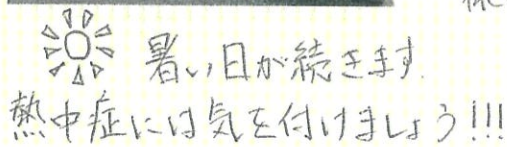 暑い日が続きます
熱中症には気を付けましょう!!!